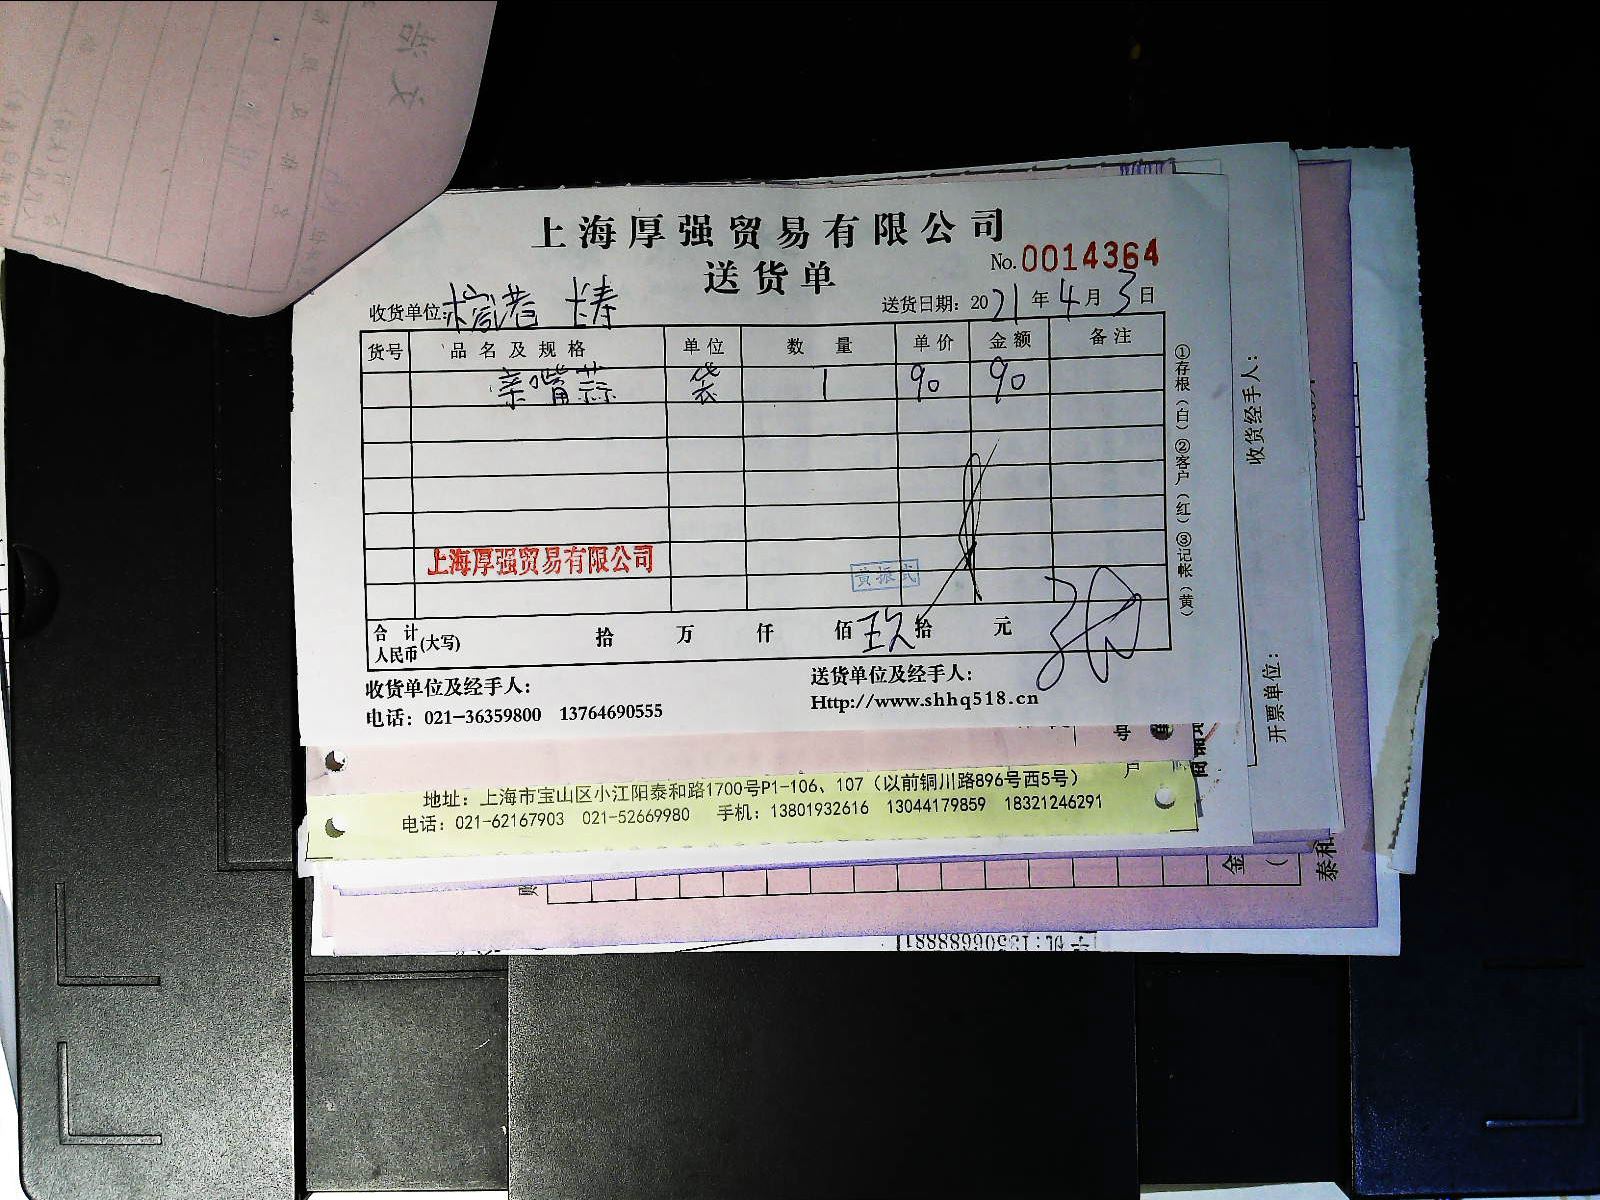 上海厚强贸易有限公司
送货单
No.0014364
收货单位:
送货日期: 2021年4月3日
货号 品名及规格 单位 数量 单价 金额 备注
亲嘴蒜 袋 1 90 90
上海厚强贸易有限公司
黄振武
合计人民币(大写) 拾 万 仟 佰 玖拾 元
收货单位及经手人:
送货单位及经手人:
电话: 021-36359800 13764690555
Http://www.shhq518.cn
①存根(白)②客户(红)③记帐(黄)
收货经手人:
开票单位:
号
户
地址: 上海市宝山区小江阳泰和路1700号P1-106、107 (以前铜川路896号西5号)
电话: 021-62167903 021-52669980 手机: 13801932616 13044179859 18321246291
金
泰和